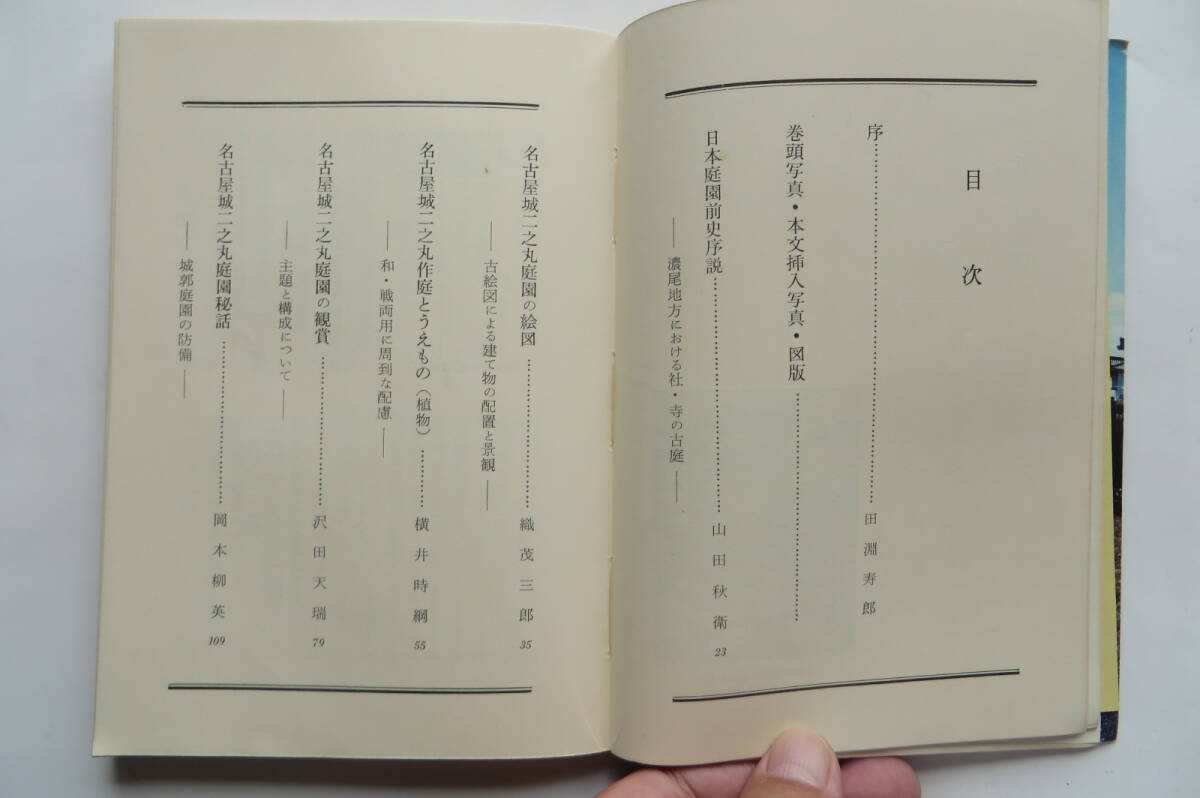 目次
序……………………田淵寿郎
巻頭写真・本文挿入写真・図版……………………
日本庭園前史序説……………………山田秋衛 23
――濃尾地方における社・寺の古庭――
名古屋城二之丸庭園の絵図……………………織茂三郎 35
――古絵図による建て物の配置と景観――
名古屋城二之丸作庭とうえもの（植物）………横井時綱 55
――和・戦両用に周到な配慮――
名古屋城二之丸庭園の観賞……………………沢田天瑞 79
――主題と構成について――
名古屋城二之丸庭園秘話……………………岡本柳英 109
――城郭庭園の防備――